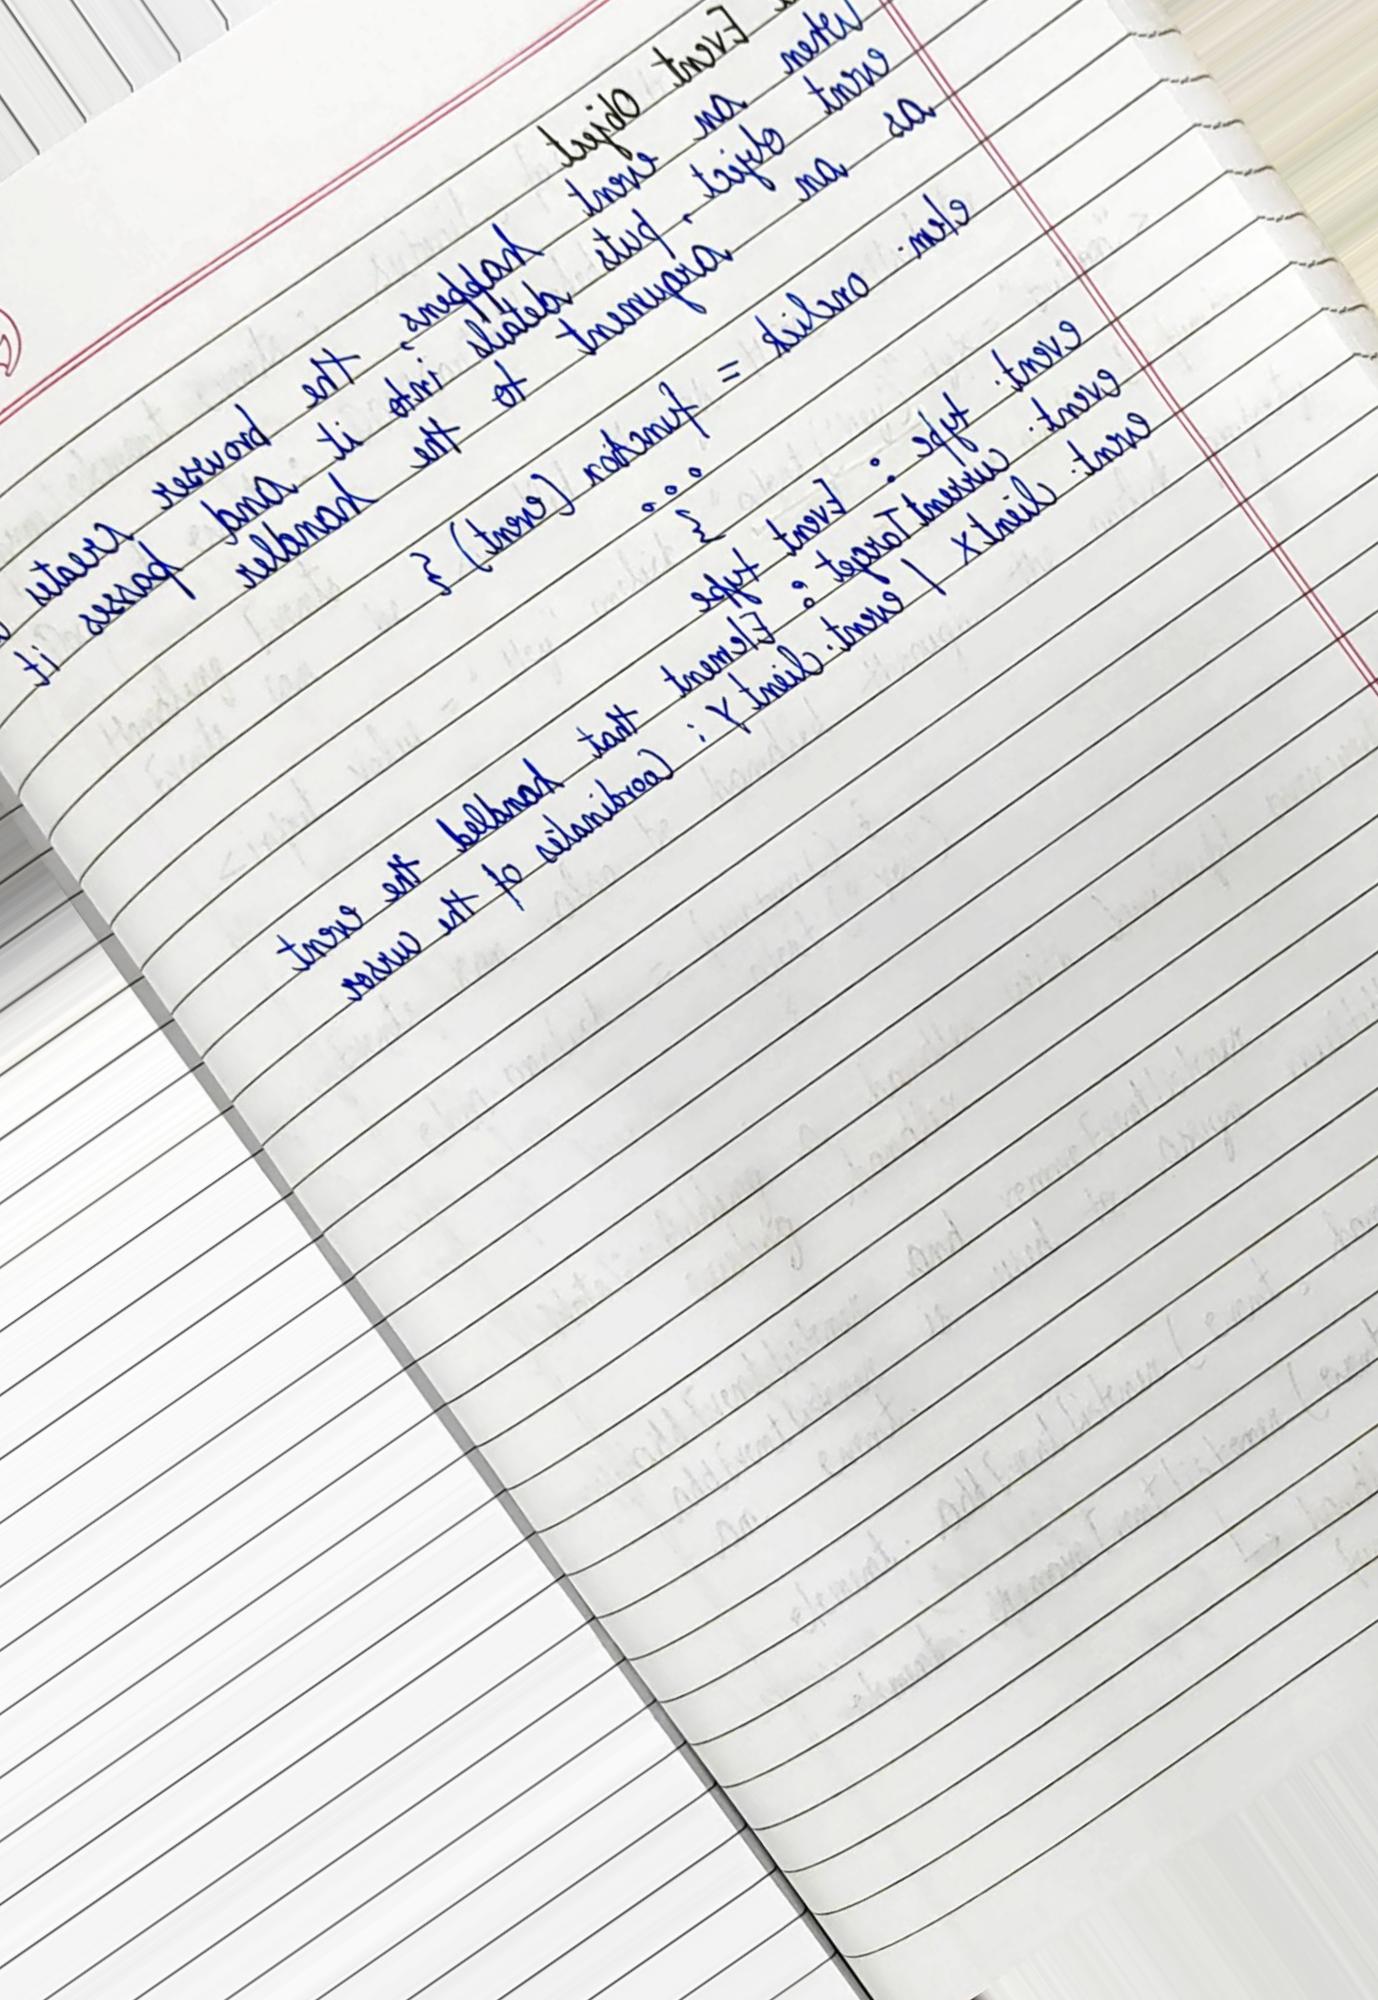 Event Object
When an event happens, the browser creates
event object, puts details into it and passes it
as an argument to the handler
elem. onclick = function (event) {
...
}
event. type : Event type
event. currentTarget : Element that handled the event
event. clientX / event. clientY : Coordinates of the cursor